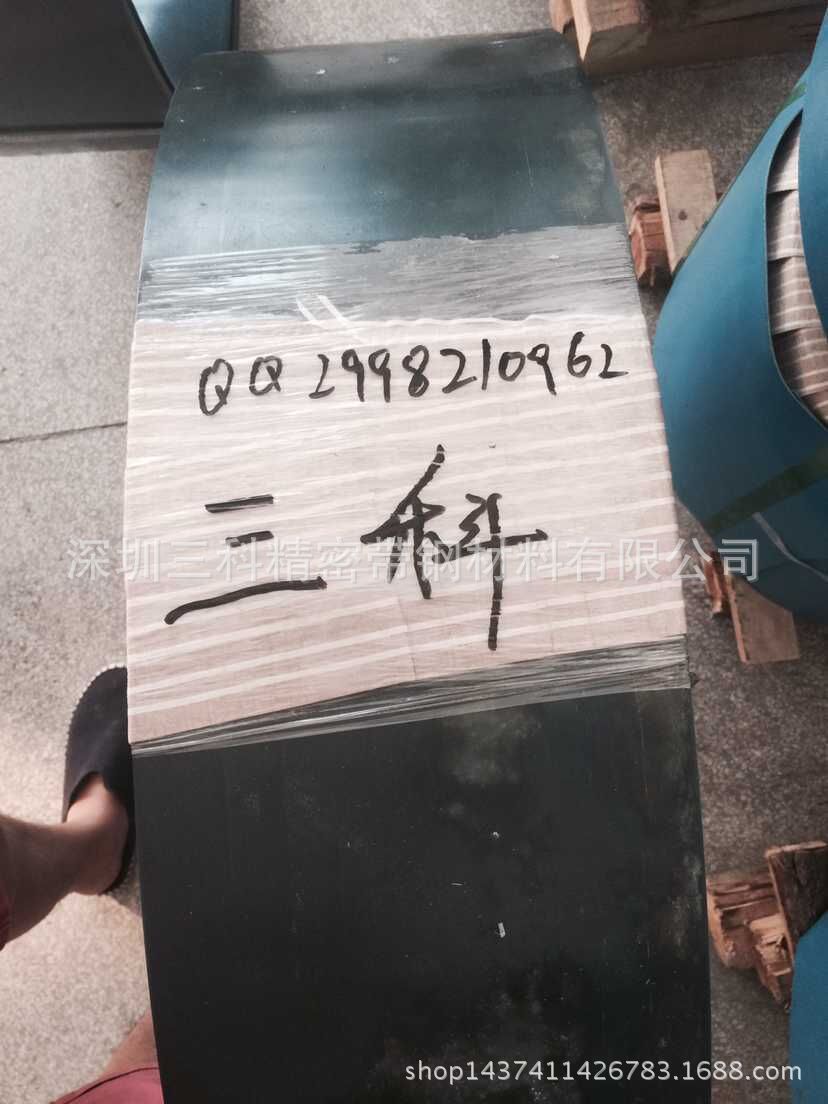 QQ 2998210962
三科
深圳三科精密带钢材料有限公司
shop1437411426783.1688.com